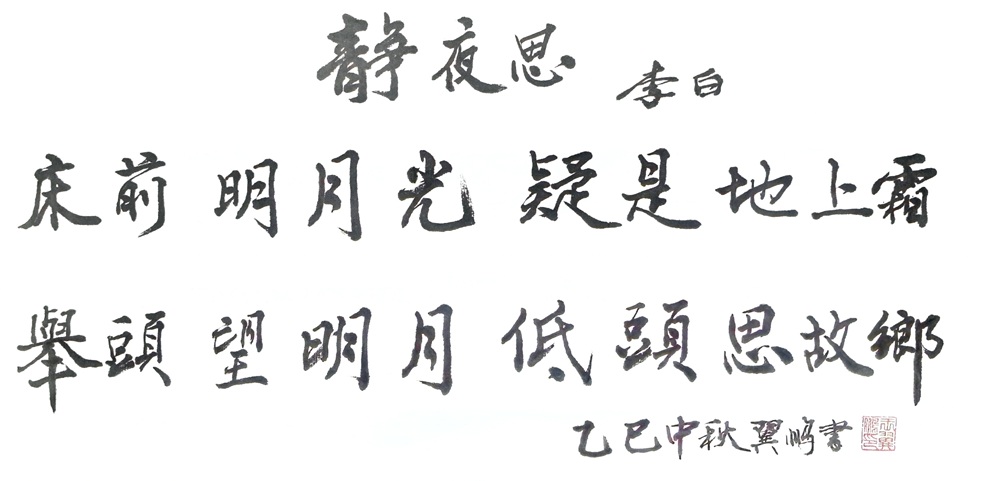 靜夜思 李白
床前明月光 疑是地上霜
舉頭望明月 低頭思故鄉
乙巳中秋翼鵬書